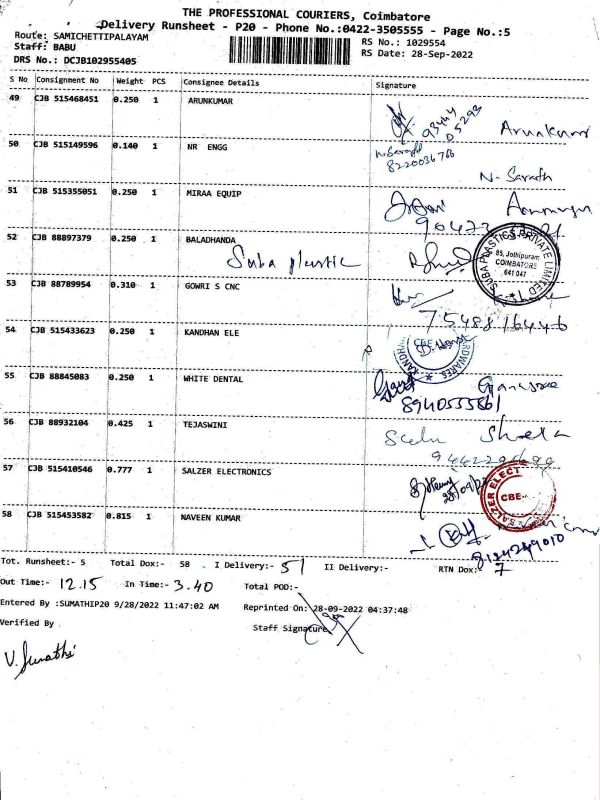 THE PROFESSIONAL COURIERS, Coimbatore
Delivery Runsheet - P20 - Phone No.:0422-3505555 - Page No.:5
Route: SAMICHETTIPALAYAM
RS No.: 1029554
Staff: BABU
RS Date: 28-Sep-2022
DRS No.: DCJB102955405
S No Consignment No Weight PCS Consignee Details Signature
49 CJB 515468451 0.250 1 ARUNKUMAR
93444 05293
Arunkumar
50 CJB 515149596 0.140 1 NR ENGG
8220036766
N. Sarath
51 CJB 515355051 0.250 1 MIRAA EQUIP
52 CJB 88897379 0.250 1 BALADHANDA
Suba plastic
SUBA PLASTICS PRIVATE LIMITED
85, Jothipuram
COIMBATORE
641 047
53 CJB 88789954 0.310 1 GOWRI S CNC
7548816446
54 CJB 515433623 0.250 1 KANDHAN ELE
55 CJB 88845083 0.250 1 WHITE DENTAL
8940555661
56 CJB 88932104 0.425 1 TEJASWINI
57 CJB 515410546 0.777 1 SALZER ELECTRONICS
SALZER ELECT
CBE
58 CJB 515453582 0.815 1 NAVEEN KUMAR
8124249010
Tot. Runsheet:- 5 Total Dox:- 58 I Delivery:- 51 II Delivery:- RTN Dox:- 7
Out Time:- 12.15 In Time:- 3.40 Total POD:-
Entered By :SUMATHIP20 9/28/2022 11:47:02 AM Reprinted On: 28-09-2022 04:37:48
Verified By Staff Signature
V. Sumathi